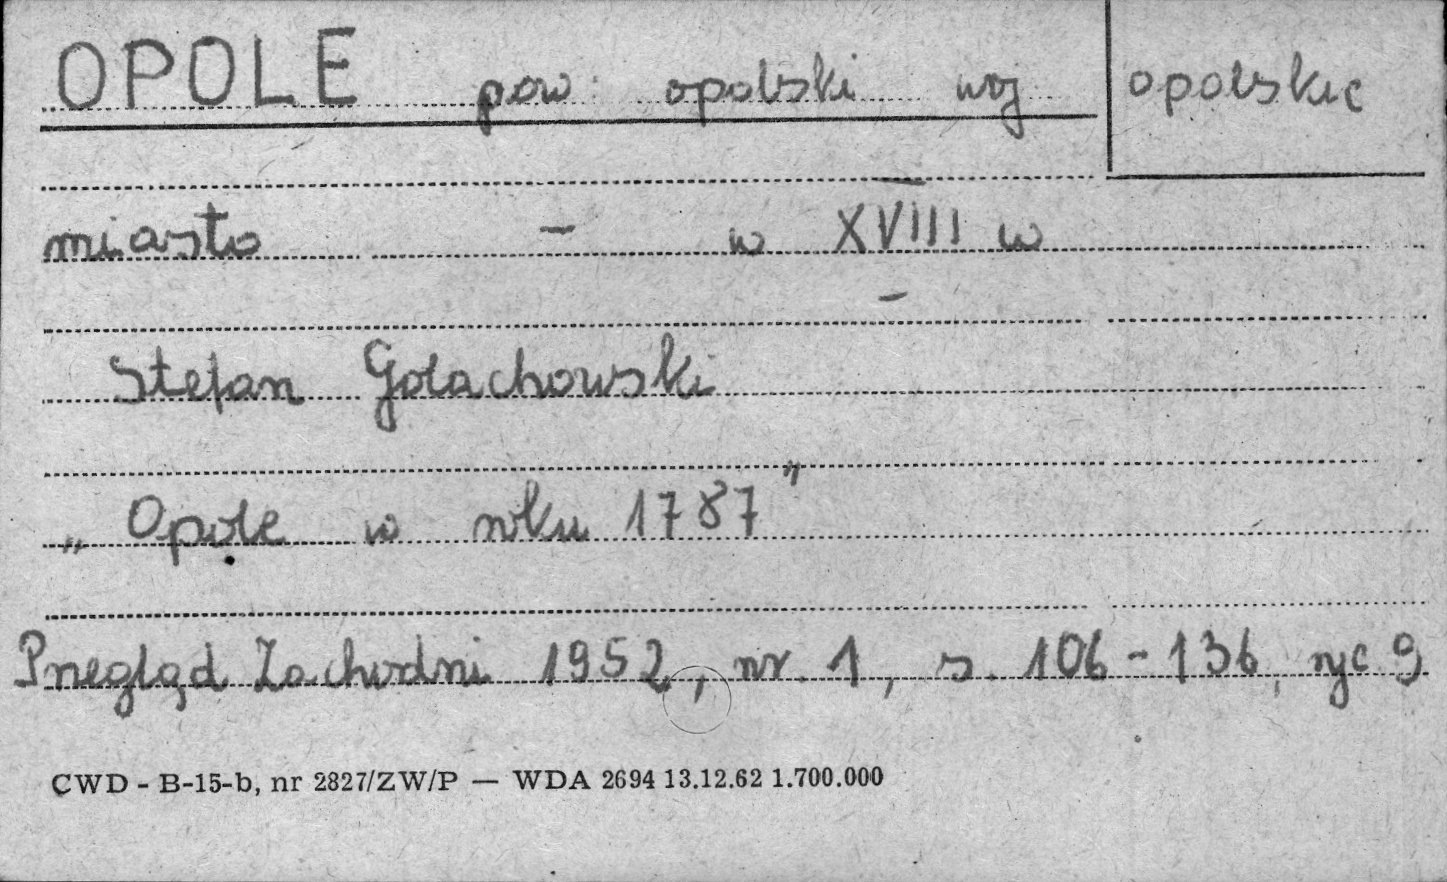 OPOLE pow. opolski woj opolskie
miasto - w XVIII w
Stefan Gołachowski
„Opole w roku 1787”
Przegląd Zachodni 1952, nr. 1, s. 106-136, ryc 9
CWD - B-15-b, nr 2827/ZW/P — WDA 2694 13.12.62 1.700.000